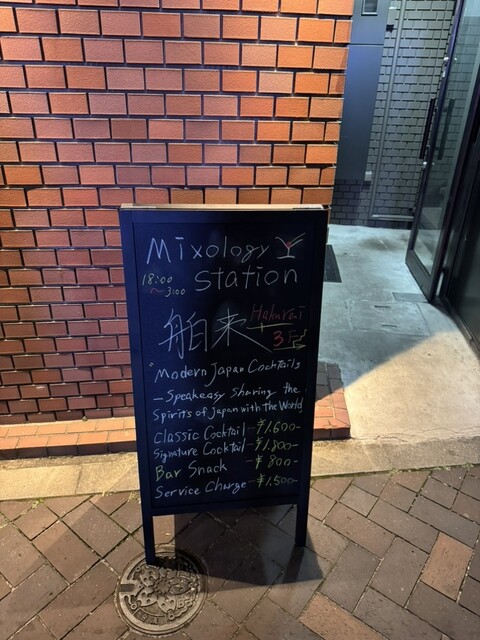 Mixology
18:00 Station
~3:00
舶来 Hakurai
3F
"Modern Japan Cocktails
– Speakeasy Sharing the
Spirits of Japan with the World
Classic Cocktail – ¥1,600-
Signature Cocktail – ¥1,800-
Bar Snack – ¥800-
Service Charge – ¥1,500-